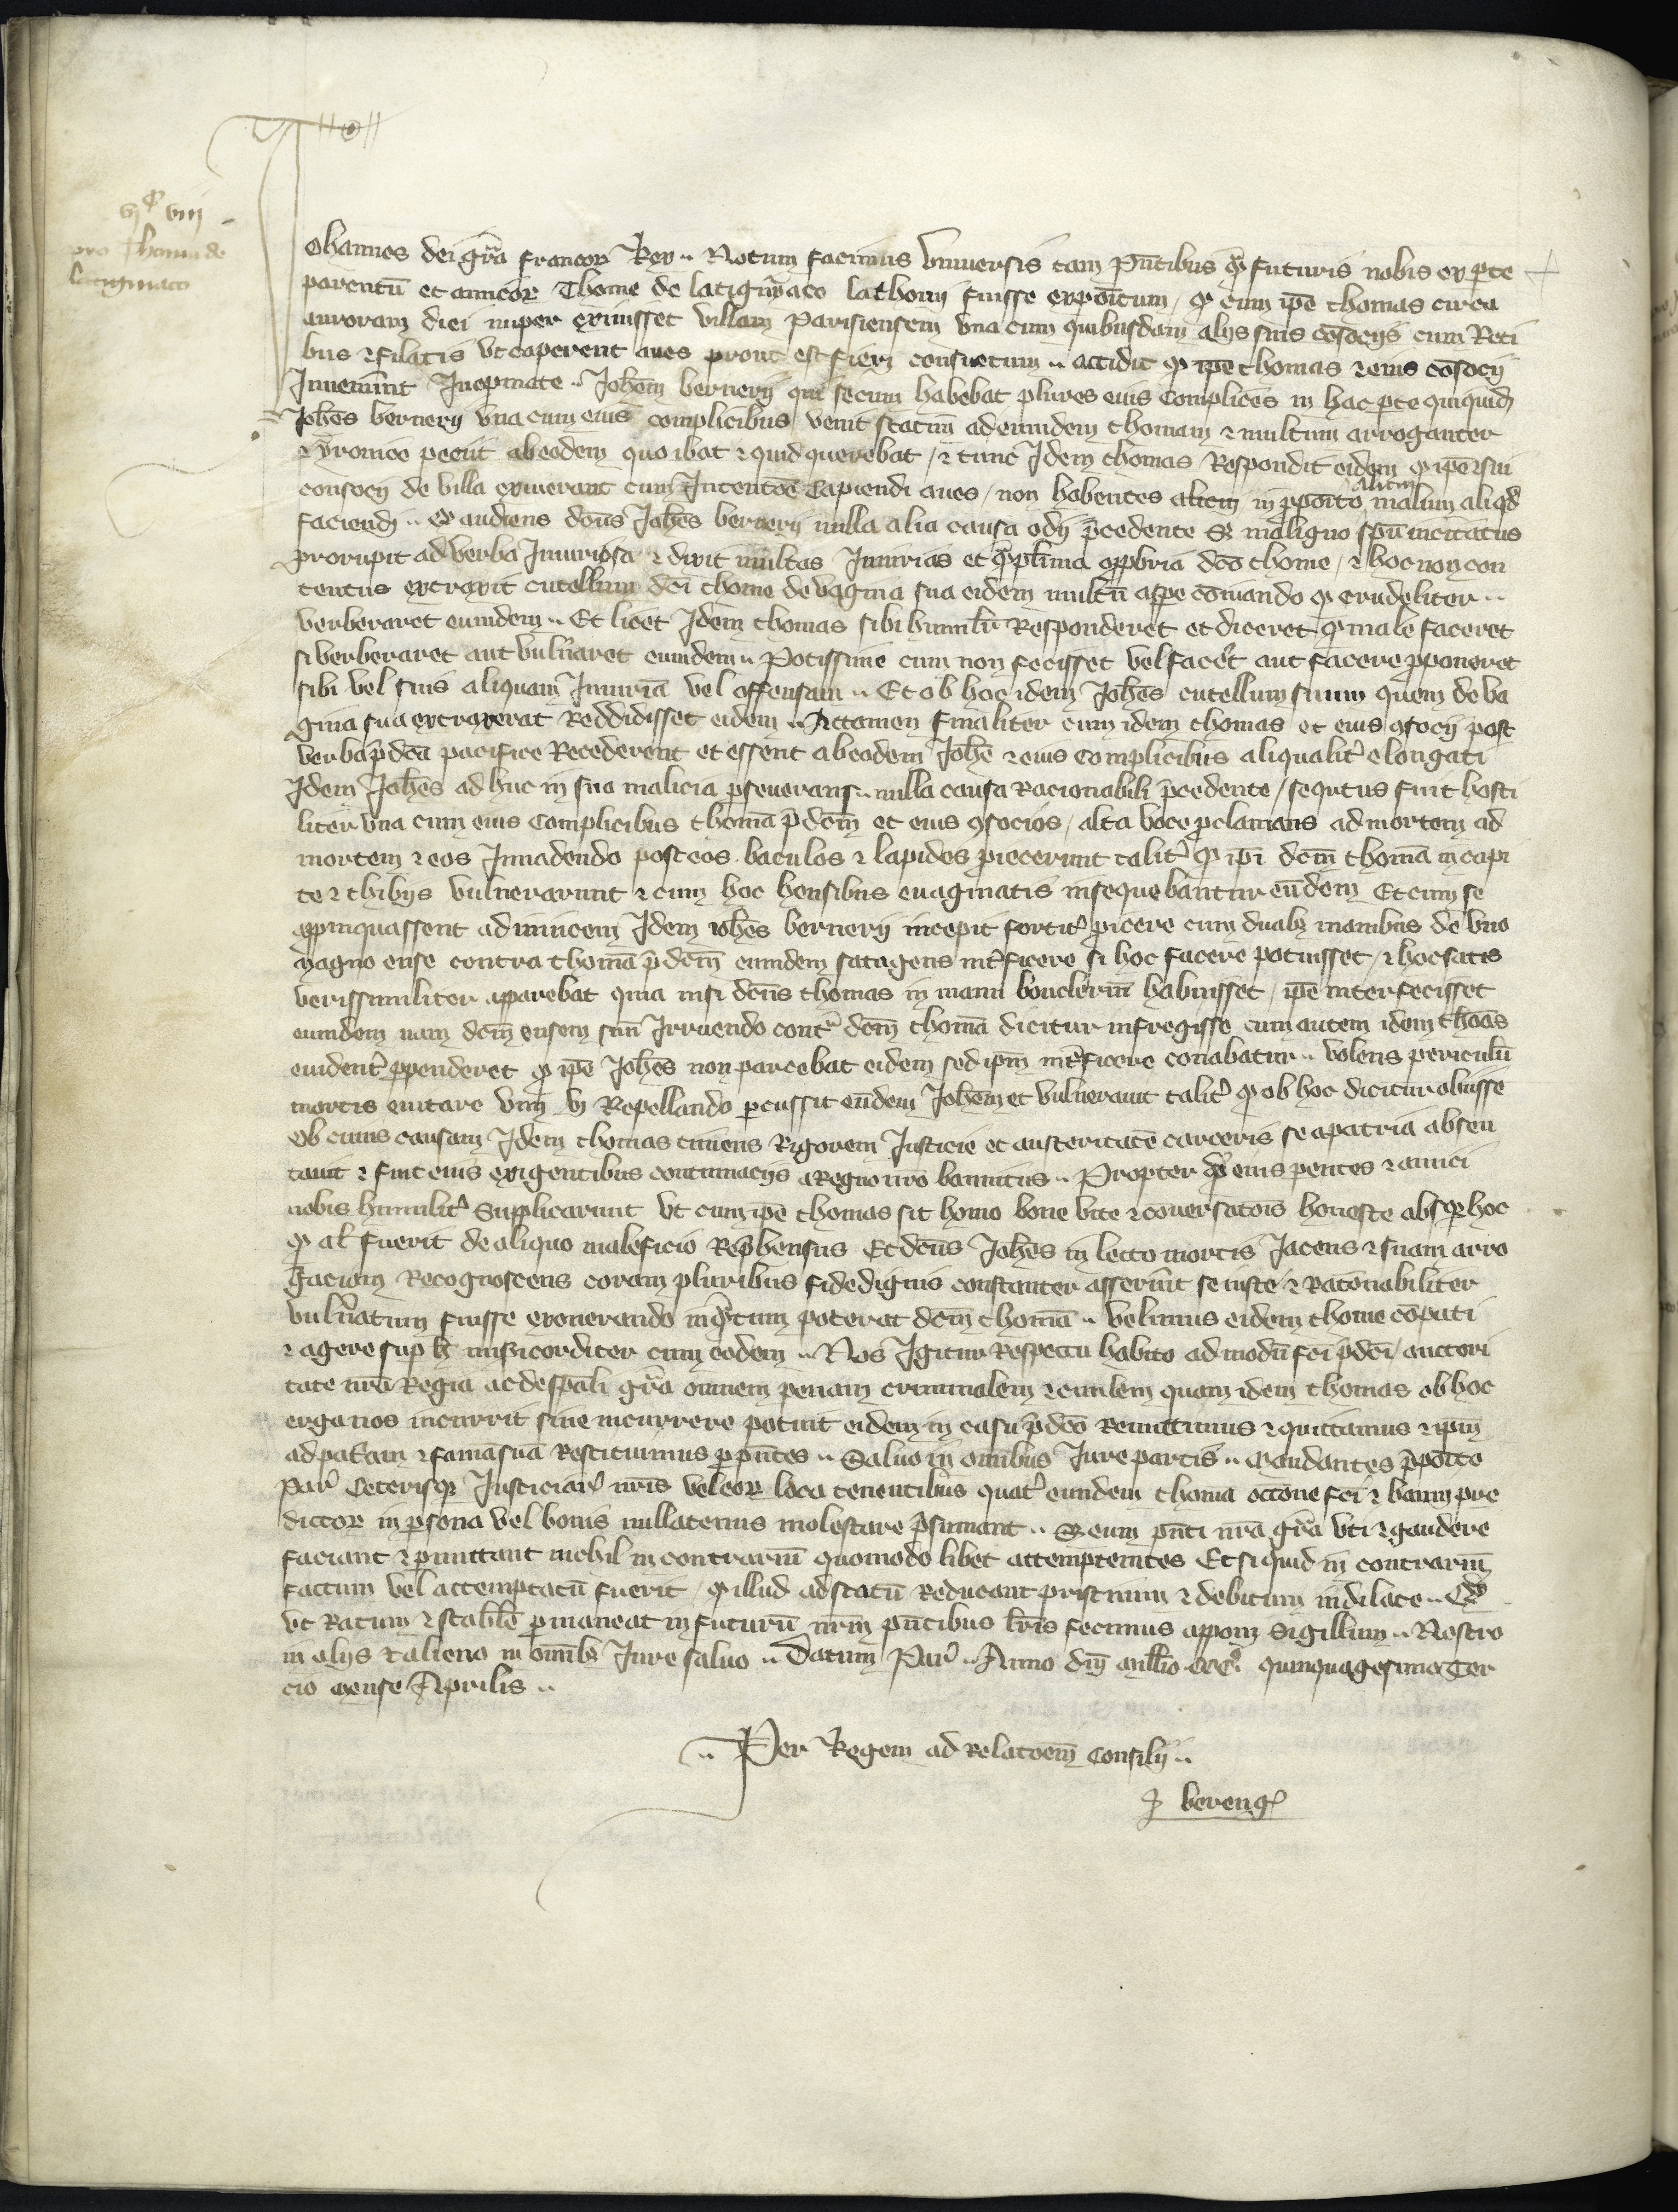 vjc viij
pro Thoma de
latigniaco
Johannes dei gr̄a francoꝝ Rex .. Notum facimus Vniuersis tam pn̄tibus qͣm futuris nobis ex ꝑte
parentū et amicoꝝ Thome de latigniaco lathomj fuisse expoītum / ꝙ cum ip̄e thomas circa
auroram diei nuper exiuisset villam Parisiensem vna cum quibusdam alijs suis cōsocijs cum Reti
bus ⁊ filatis vt caperent aues prout est fierj consuetum .. accidit ꝙ ip̄e thomas ⁊ eius cōsocij
Inuenerunt Inopinate .. Joh̄em bernerij qui secum habebat plures eius complices in hac ꝑte quiquid̄
Joh̄es bernerij vna cum eius complicibus venit statim ad eumdem thomam ⁊ multum arroganter
⁊ yronice peciit ab eodem quo ibat ⁊ quid querebat / ⁊ tunc Idem thomas Respondit eidem ꝙ ip̄e ⁊ sui
consocij de villa exiuerant cum Intentōe Capiendi aues / non habentes alicui in ꝓpoīto malum aliqd̄
alicui
faciendj .. Qͦ audiens dc̄us Joh̄es bernerij nulla alia causa odij p̄cedente Sꝫ maligno sp̄u incitatus
prorupit ad verba Iniuriosa ⁊ dixit multas Iniurias et qͣmpl̄ima opprobria dc̄o thome / ⁊ hoc non con
tentus extraxit cutellum dc̄i thome de vagina sua eidem multū asꝑe cōmando ꝙ crudeliter ..
verberaret eumdem .. Et licet Idem thomas sibi humilit̾ Responderet et diceret ꝙ male faceret
si verberaret aut vuln̄aret eumdem .. Potissime cum non fecisset vel facer̾t aut facere ꝓponeret
sibi vel suis aliquam Iniuriā vel offensam .. Et ob hoc idem Joh̄es cutellum suum quem de va
gina sua extraxerat Reddidisset eidem .. Actamen finaliter cum idem thomas et eius ꝯsocij post
verba p̄dc̄a pacifice Recederent et essent ab eodem Joh̄e ⁊ eius Complicibus aliqualit̾ elongati
Idem Joh̄es ad huc in sua malicia ꝑseuerans .. nulla causa Racionabili p̄cedente / secutus fuit hosti
liter vna cum eius Complicibus thomā p̄dc̄m et eius ꝯsocios / alta voce ꝓclamans ad mortem ad
mortem ⁊ eos Inuadendo post eos baculos ⁊ lapides ꝓiecerunt talit̾ ꝙ ip̄i dc̄m thomā in capi
te ⁊ tibijs vulnerarunt ⁊ cum hoc hensibus euaginatis insequebantur eūdem Et cum se
appinquassent ad inuicem Idem ioh̄es bernerij incepit fortit̾ ꝓicere cum duabꝫ manibus de vno
magno ense contra thomā p̄dc̄m eumdem satagens int̾ficere si hoc facere potuisset / ⁊ hoc satis
verissimiliter apparebat quia nisi dc̄us thomas in manu bouclerium habuisset / ip̄e interfecisset
eumdem nam dc̄m ensem suū Irruendo contͣ dc̄m thomā dicitur infregisse cum autem idem thoās
euident̾ ꝑpenderet ꝙ ip̄e Joh̄es non parcebat eidem sed ip̄m int̾ficere conabatur .. Volens periculū
mortis euitare vim vj Repellando ꝑcussit eūdem Joh̄em et vulnerauit talit̾ ꝙ ob hoc dicitur obiisse
Ob cuius causam Idem thomas timens Rigorem Justicie et austeritatē carceris se a patria absen
tauit ⁊ fuit eius exigentibus contumacijs a Regno nr̄o bannitus .. Propter qͦd eius ꝑentes ⁊ amici
nobis humilit̾ Supplicarunt vt cum ip̄e thomas sit homo bone vite ⁊ cōuersatōis honeste absqꝫ hoc
ꝙ al̾ fuerit de aliquo maleficio Rep̄hensus Et dc̄us Joh̄es in lecto mortis Jacens ⁊ suam arro
ganciam Recognoscens coram pluribus fidedignis constanter asseruit se iuste ⁊ Racōnabiliter
vuln̄atum fuisse exonerando inqͣntum poterat dc̄m thomā .. velimus eidem thome cōpati
⁊ agere suꝑ h̄ misericorditer cum eodem .. Nos Igitur Respectu habito ad modū fc̄i p̄dc̄i / auctori
tate nr̄a Regia ac de sp̄ali gr̄a omnem penam criminalem ⁊ ciuilem quam idem thomas ob hoc
erga nos incurrit siue incurrere potuit eidem in casu p̄dc̄o Remittimus ⁊ quittamus ⁊ ip̄m
ad pat̾am ⁊ famā suā Restituimus ꝑ pn̄tes .. Saluo in omībus Iure partis .. Mandantes p̄poīto
Par̾ Ceterisqꝫ Iusticiar̾ nr̄is vel eoꝝ loca tenentibus quat̾ eumdem thomā occōne fc̄i ⁊ bannj pre
dictoꝝ in ꝑsona vel bonis nullatenus molestare p̄sumant .. Sꝫ eum pn̄ti nr̄a gr̄a vti ⁊ gaudere
faciant ⁊ ꝑmittant nichil in contrariū quomodo libet attemptentes Et si quid in contrariū
factum vel attemptatū fuerit / ꝙ illud ad statū Reducant pristinum ⁊ debitum indilate .. Qͦd
vt Ratum ⁊ stabl̄e ꝑmaneat in futurū nr̄m pn̄tibus lr̄is fecimus apponj Sigillum .. Nostro
in alijs ⁊ alieno in omībꝫ Iure saluo .. Datum Par̾ .. Anno dn̄j mill̄io cccͦ quinquagesimo Ter
cio Mense Aprilis ..
.. Per Regem ad Relatōem Consilij ..
P bereng̾